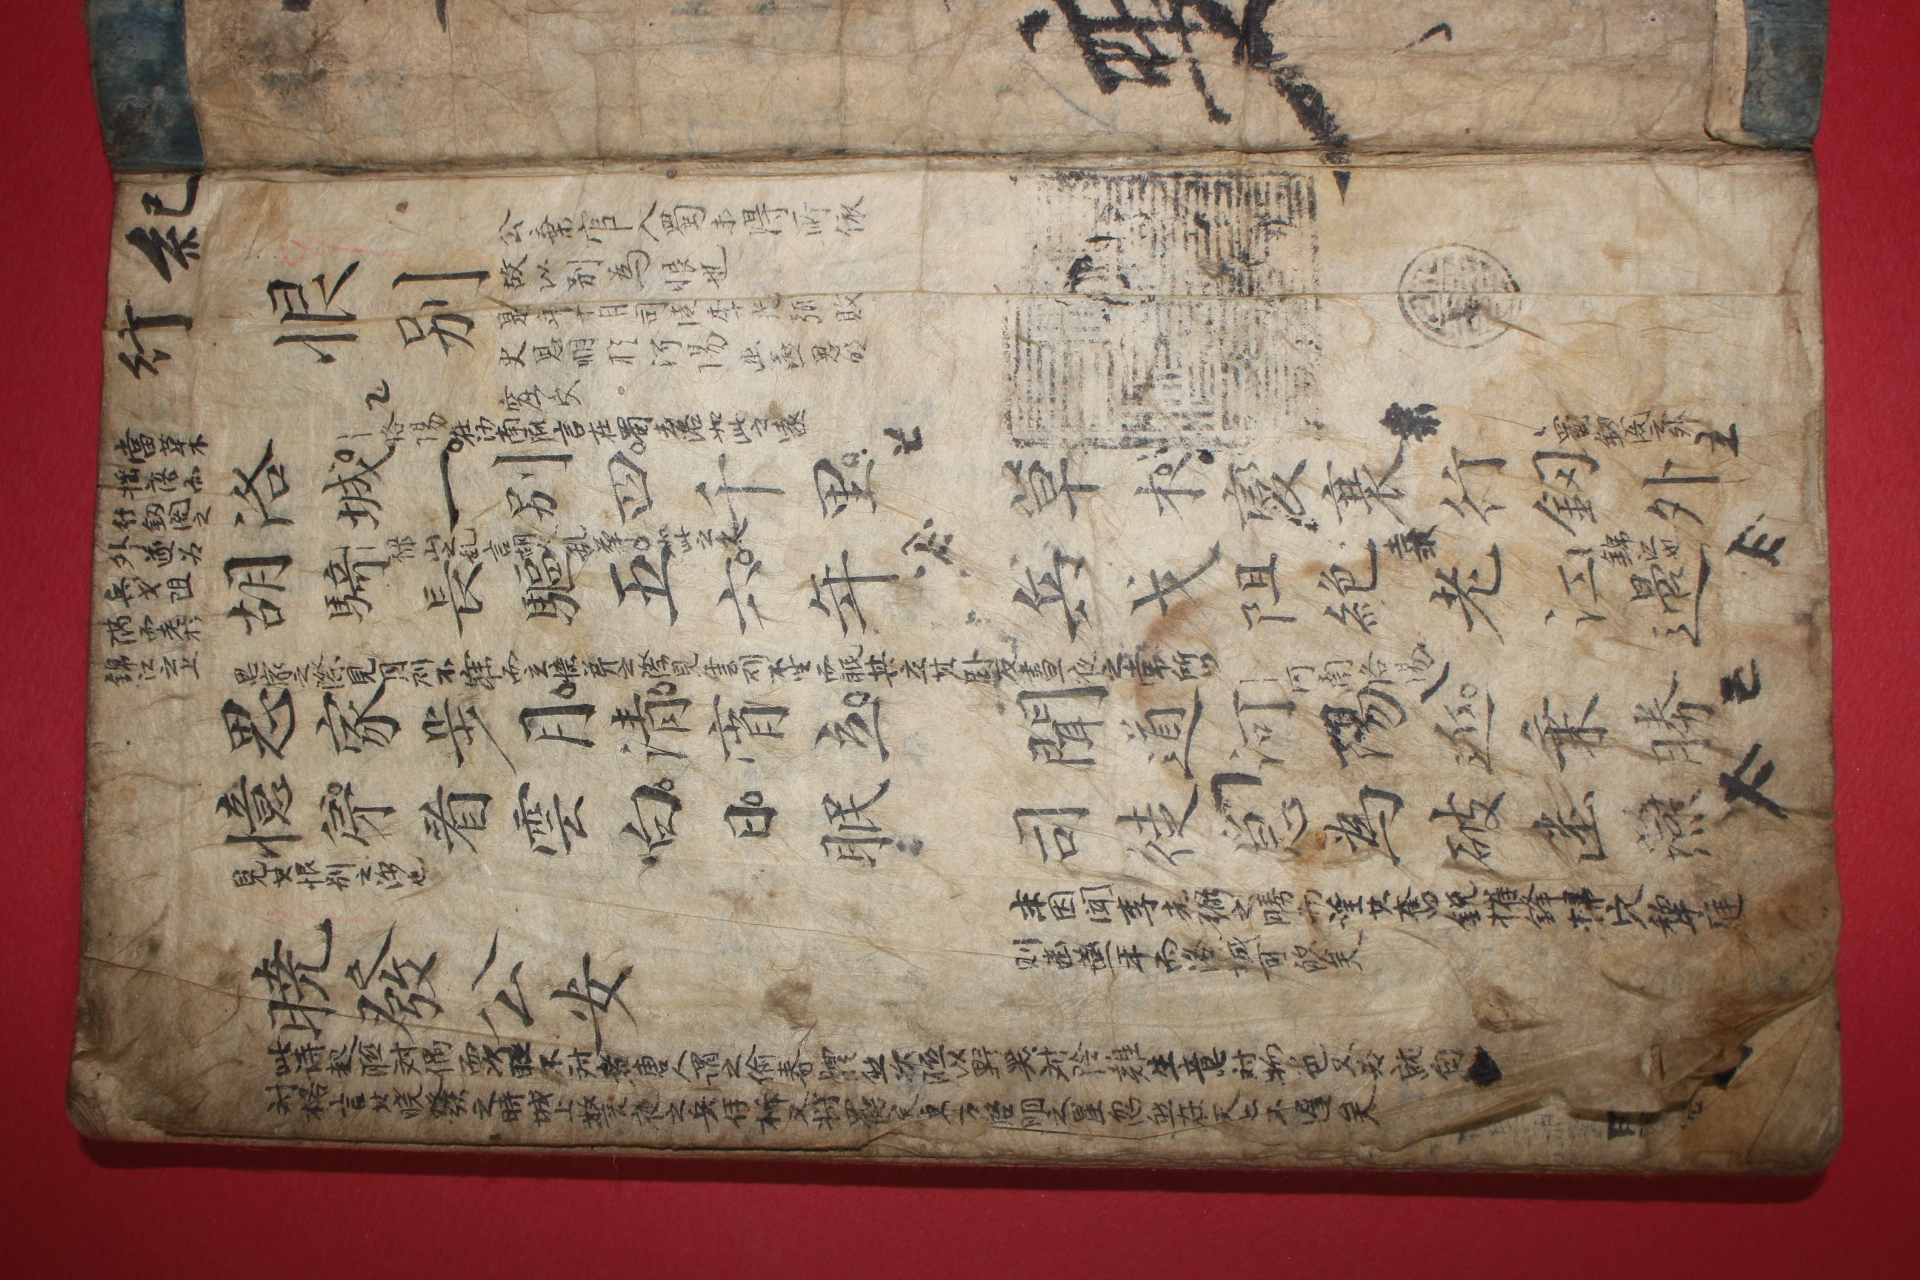 紀
行
恨別
公棄官入蜀未得所依
故以別為恨也
是年十月司徒李光弼敗
史思明於河陽
洛城一別四千里
草木變衰行釰外
洛陽在河南
言在蜀
當草木
揺落而
行釰閣之
外遂為
兵戈阻
隔而老於
錦江之上
蜀釰閣之外
胡騎長驅五六年
兵戈阻絶老江邊
祿山之乱言胡人乱華
如此之久
錦江也
思家步月清宵立
聞道河陽近乗勝
思家之際見月則不寐而立憶弟之際見雲則不坐而眠其立其卧反晝夜之常所以
河南洛陽
憶弟看雲白日眠
司徒急為破幽燕
見其恨別之深也
末因聞李光弼之勝而望其奮銳摧鋒掃穴犁庭
則幽燕平而洛城可的矣
曉發公安
此詩起聯對偶而次聯不對者唐人謂之偷春體然次聯以野哭對隣雞生意對物色又為就句
對格言其曉發之時城上擊
東方啓明之星忽然在天上不遲矣